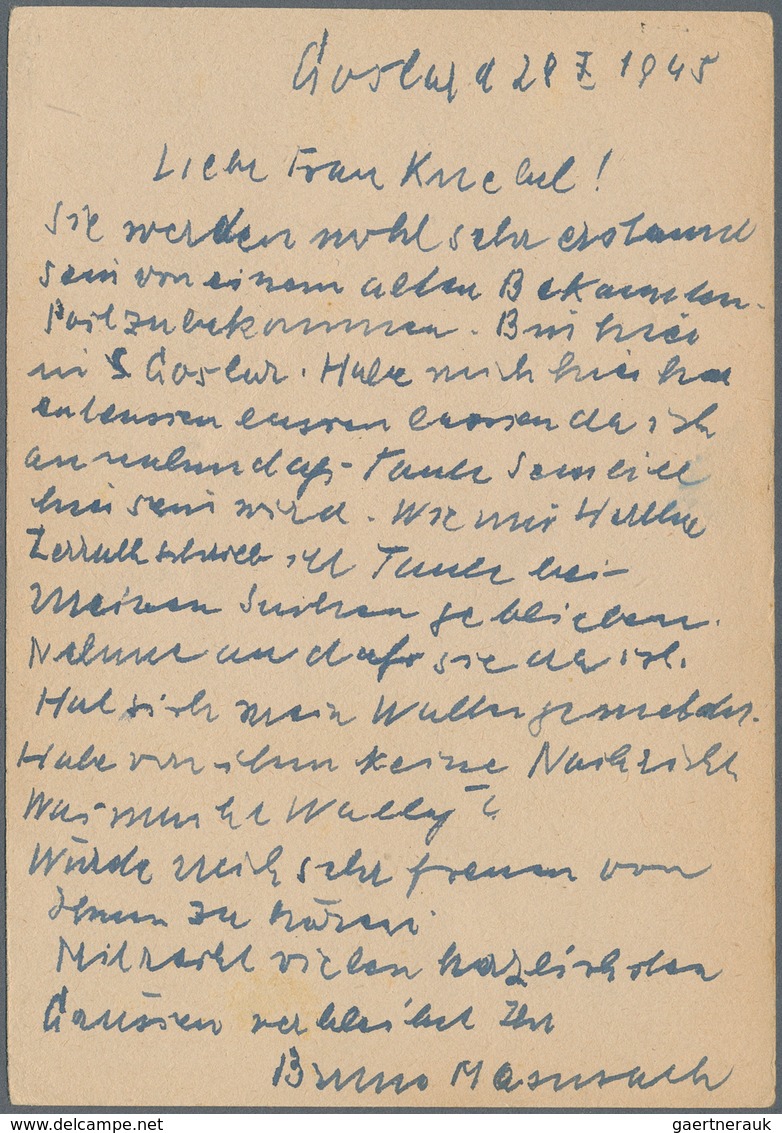 Goslar d 28 X 1945
Liebe Frau Knebel!
Sie werden wohl sehr erstaund
sein von einem alten Bekannten
Post zu bekommen. Bin hier
in Goslar. Habe mich hier her
entlassen lassen da ich
annehm daß Tante
hier sein wird. Wie mir Herta
schrieb ist Tante bei
meinen geblieben.
Nehme an daß sie da ist.
Hat sich mein Walter gemeldet.
Habe von ihm keine Nachricht
Was macht Wally?
Würde mich sehr freuen von
Ihnen zu hören.
Mit recht vielen herzlichsten
Grüssen verbleibt Ihr
Bruno
delcampe.net
gaertnerauk